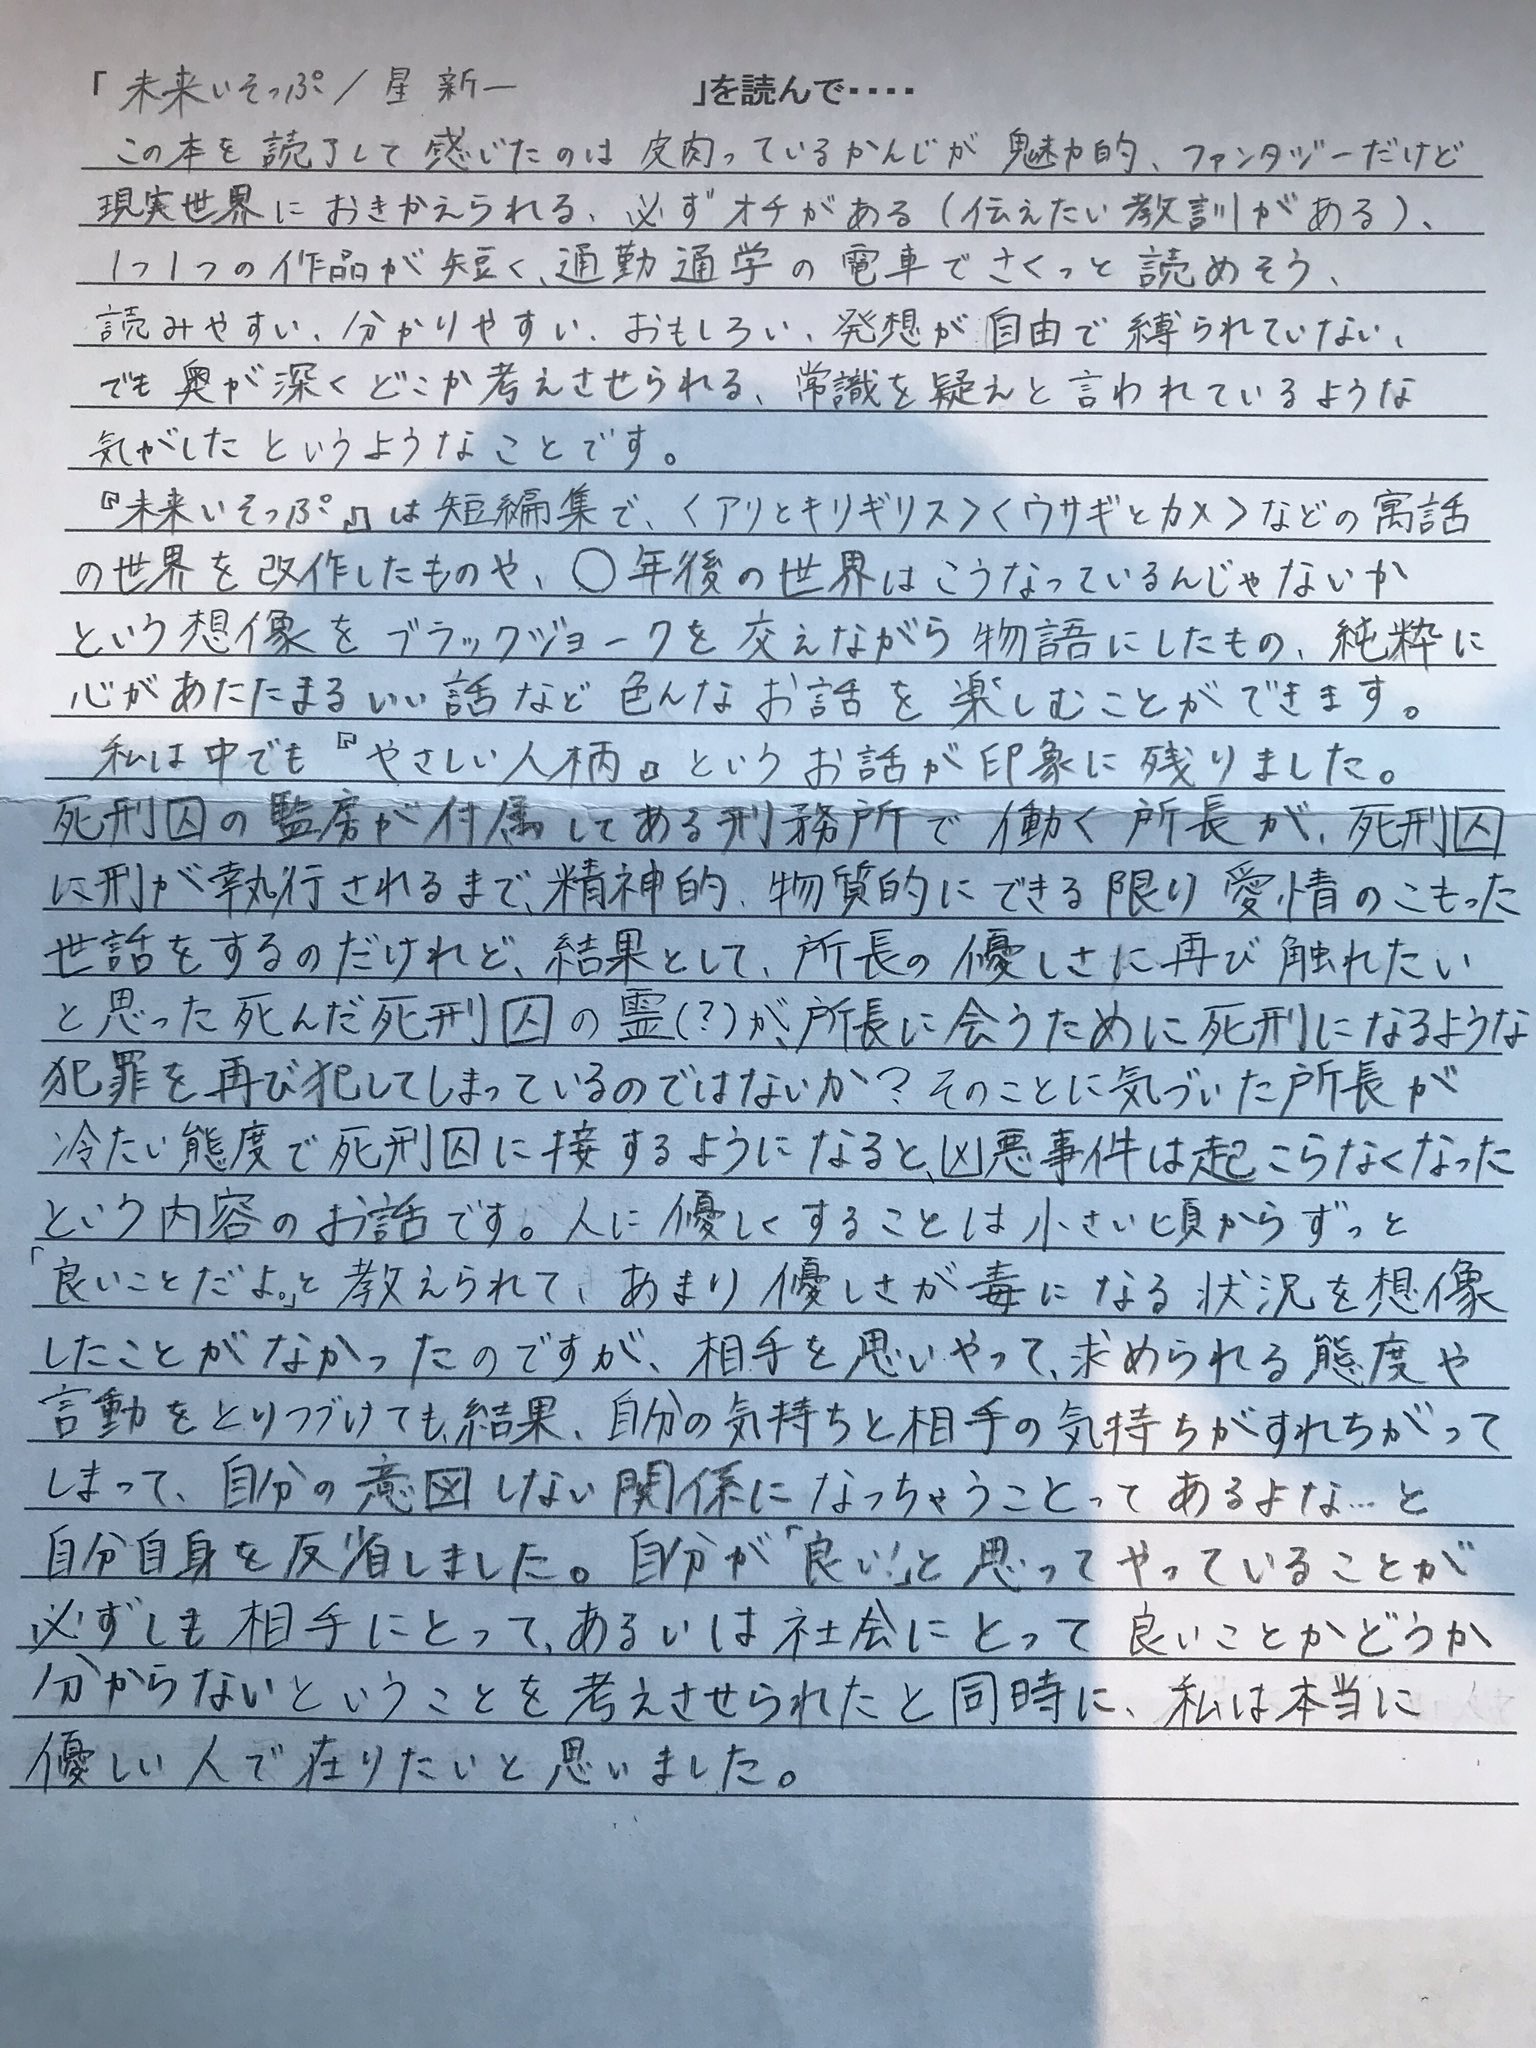 「未来いそっぷ/星 新一 」を読んで・・・・
この本を読了して感じたのは皮肉っているかんじが魅力的、ファンタジーだけど
現実世界におきかえられる、必ずオチがある(伝えたい教訓がある)、
1つ1つの作品が短く、通勤通学の電車でさくっと読めそう、
読みやすい、分かりやすい、おもしろい、発想が自由で縛られていない、
でも奥が深くどこか考えさせられる、常識を疑えと言われているような
気がしたというようなことです。
『未来いそっぷ』は短編集で、〈アリとキリギリス〉〈ウサギとカメ〉などの寓話
の世界を改作したものや、〇年後の世界はこうなっているんじゃないか
という想像をブラックジョークを交えながら物語にしたもの、純粋に
心があたたまるいい話など色んなお話を楽しむことができます。
私は中でも『やさしい人柄』というお話が印象に残りました。
死刑囚の監房が付属してある刑務所で働く所長が、死刑囚
に刑が執行されるまで、精神的、物質的にできる限り愛情のこもった
世話をするのだけれど、結果として、所長の優しさに再び触れたい
と思った死んだ死刑囚の霊(?)が、所長に会うために死刑になるような
犯罪を再び犯してしまっているのではないか?そのことに気づいた所長が
冷たい態度で死刑囚に接するようになると、凶悪事件は起こらなくなった
という内容のお話です。人に優しくすることは小さい頃からずっと
「良いことだよ。」と教えられて、あまり優しさが毒になる状況を想像
したことがなかったのですが、相手を思いやって、求められる態度や
言動をとりつづけても、結果、自分の気持ちと相手の気持ちがすれちがって
しまって、自分の意図しない関係になっちゃうことってあるよな…と
自分自身を反省しました。自分が「良い!」と思ってやっていることが
必ずしも相手にとって、あるいは社会にとって良いことかどうか
分からないということを考えさせられたと同時に、私は本当に
優しい人で在りたいと思いました。